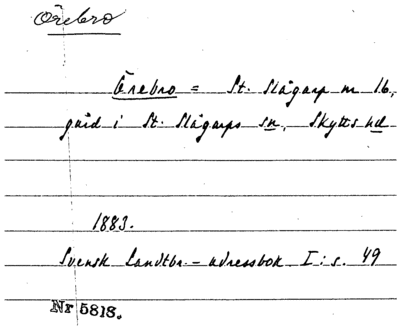 Örebro
Örebro = St. Slågarp nr 16,
gård i St. Slågarps sn, Skytts hd
1883.
Svensk Landtbr.-adressbok I: s. 49
Nr 5818.